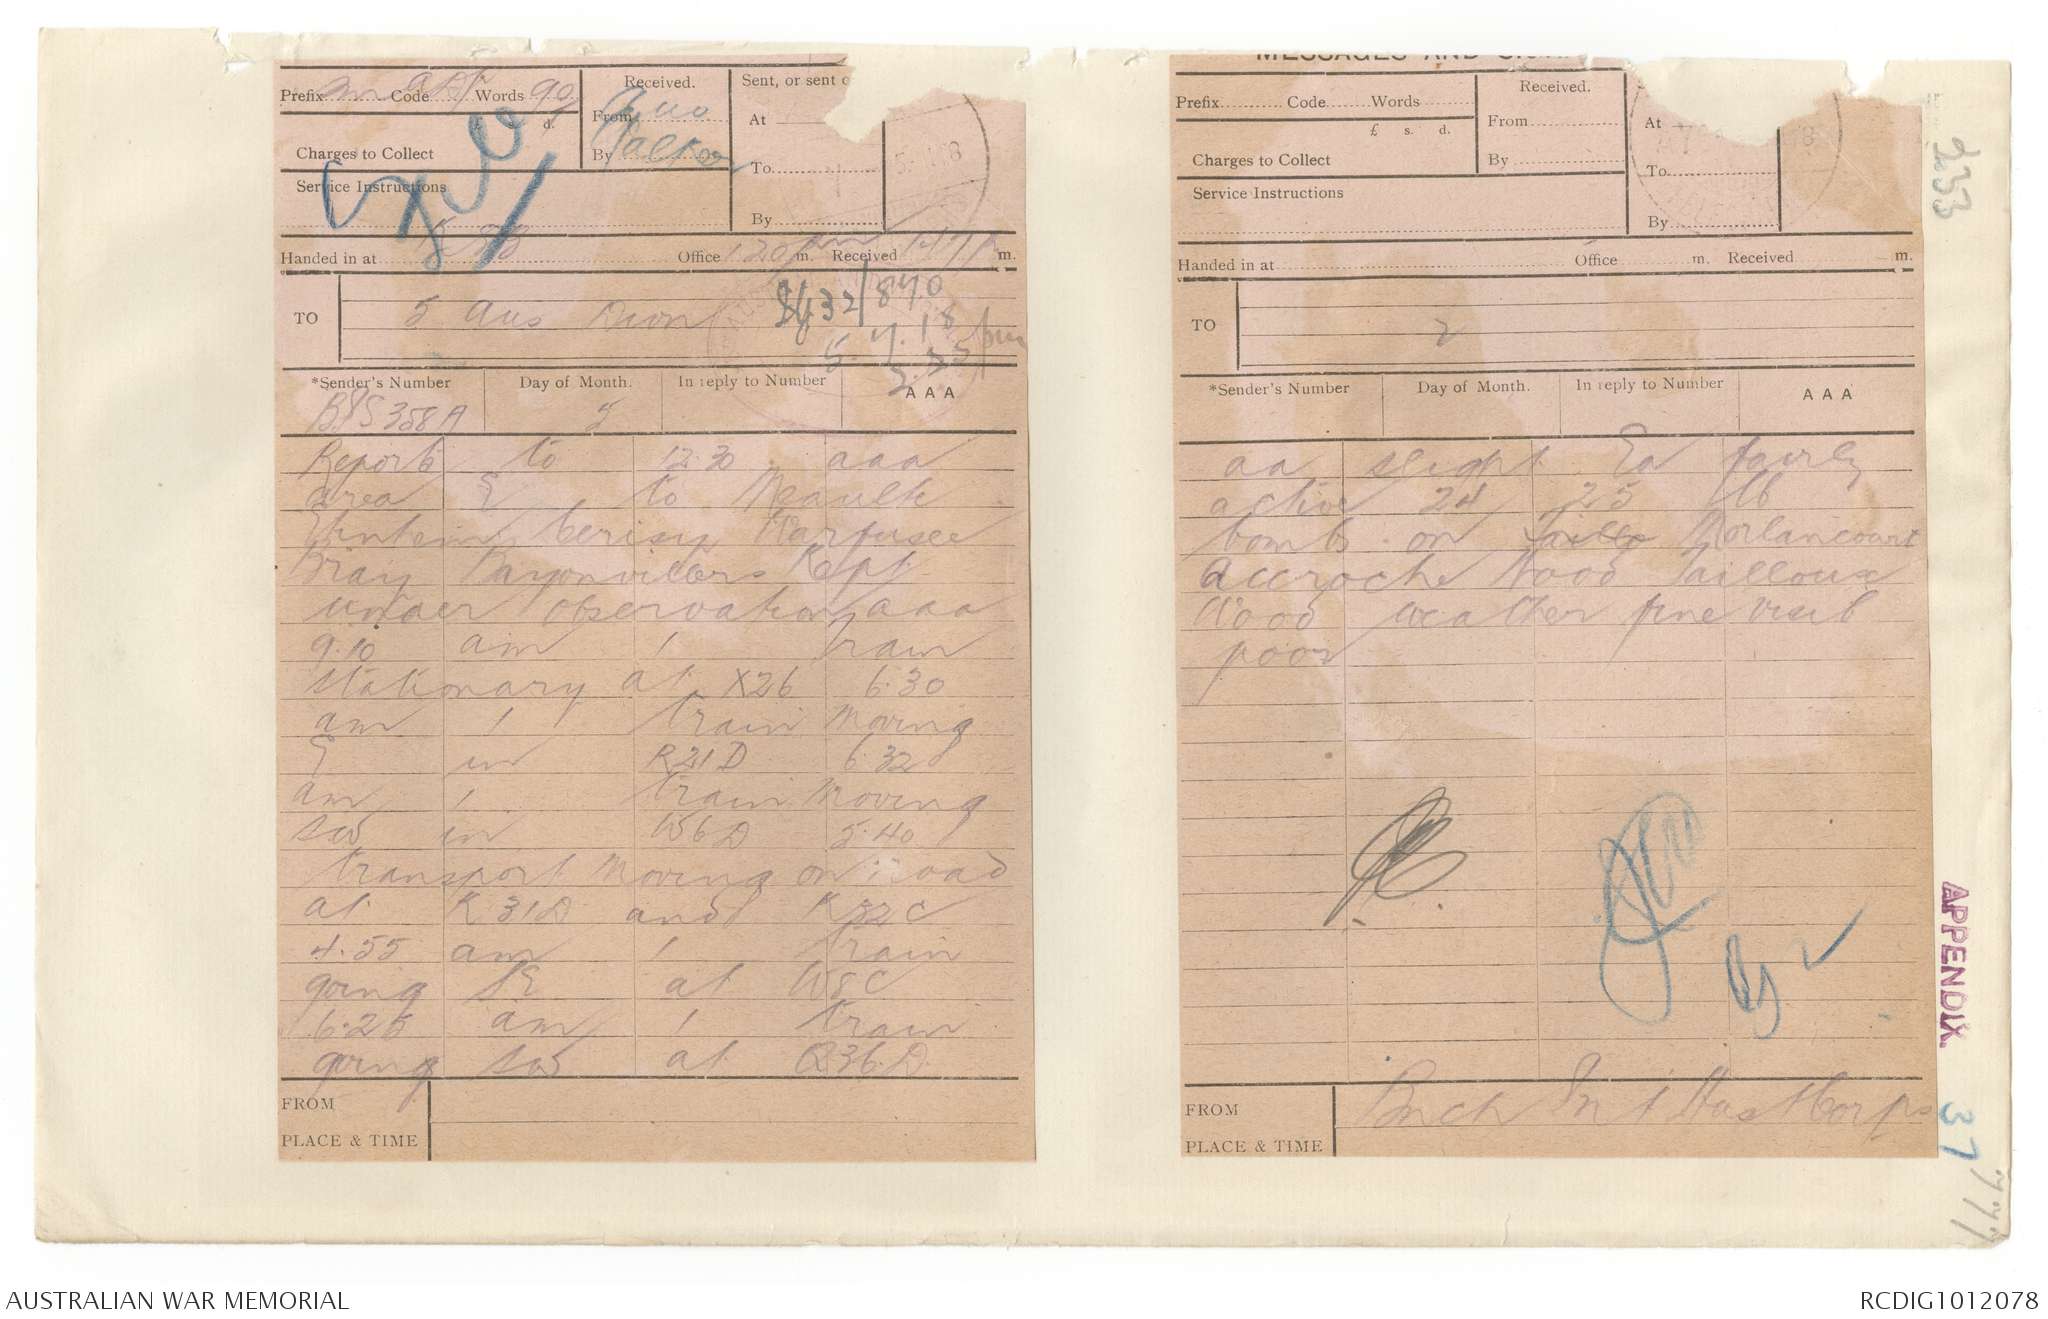 Prefix Code Words 90
Received.
From
By
Sent, or sent o
At
To
By
£ s. d.
Charges to Collect
Service Instructions
Handed in at Office 1.20 pm m. Received m.
TO 5 Aus Divn
8432/870
5.7.18
*Sender's Number Day of Month. In reply to Number AAA
5
Report to 12.30 aaa
area E to Meaulte
Cerisy Warfusee
Bray Bayonvillers Kept
under observation aaa
9.10 am 1 train
stationary at X26 6.30
am 1 train moving
E in R21D 6.32
am 1 train moving
SW in W6D 5.40
transport moving on road
at K31D and K32C
4.55 am 1 train
going SE at W8C
6.25 am 1 train
going SW at Q36.D
FROM
PLACE & TIME
MESSAGES AND
Prefix Code Words
Received.
From
By
At
To
By
£ s. d.
Charges to Collect
Service Instructions
Handed in at Office m. Received m.
TO 2
*Sender's Number Day of Month. In reply to Number AAA
aa slight Ea fairly
active 24 25 lb
bombs on Morlancourt
Accroche Wood Tailloux
Wood weather fine visib
poor
FROM Bnch Int Aust Corps
PLACE & TIME
253
APPENDIX.
37
777
AUSTRALIAN WAR MEMORIAL
RCDIG1012078